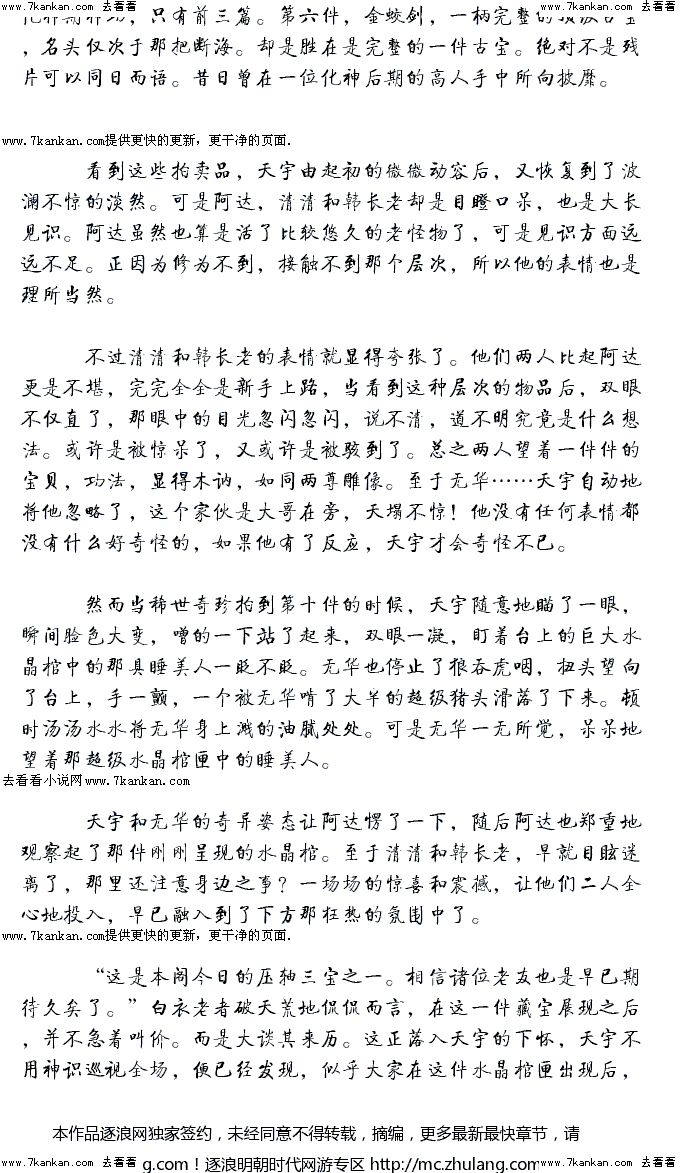 www.7kankan.com 去看看 www.7kankan.com 去看看 www.7kankan.com 去看看
，只有前三篇。第六件，金蛟剑，一柄完整的顶级古宝
，名头仅次于那把断海。却是胜在是完整的一件古宝。绝对不是残
片可以同日而语。昔日曾在一位化神后期的高人手中所向披靡。
www.7kankan.com提供更快的更新，更干净的页面.
看到这些拍卖品，天宇由起初的微微动容后，又恢复到了波
澜不惊的淡然。可是阿达，清清和韩长老却是目瞪口呆，也是大长
见识。阿达虽然也算是活了比较悠久的老怪物了，可是见识方面远
远不足。正因为修为不到，接触不到那个层次，所以他的表情也是
理所当然。
不过清清和韩长老的表情就显得夸张了。他们两人比起阿达
更是不堪，完完全全是新手上路，当看到这种层次的物品后，双眼
不仅直了，那眼中的目光忽闪忽闪，说不清，道不明究竟是什么想
法。或许是被惊呆了，又或许是被骇到了。总之两人望着一件件的
宝贝，功法，显得木讷，如同两尊雕像。至于无华……天宇自动地
将他忽略了，这个家伙是大哥在旁，天塌不惊！他没有任何表情都
没有什么好奇怪的，如果他有了反应，天宇才会奇怪不已。
然而当稀世奇珍拍到第十件的时候，天宇随意地瞄了一眼，
瞬间脸色大变，噌的一下站了起来，双眼一凝，盯着台上的巨大水
晶棺中的那具睡美人一眨不眨。无华也停止了狼吞虎咽，扭头望向
了台上，手一颤，一个被无华啃了大半的超级猪头滑落了下来。顿
时汤汤水水将无华身上溅的油腻处处。可是无华一无所觉，呆呆地
望着那超级水晶棺匣中的睡美人。
去看看小说网www.7kankan.com
天宇和无华的奇异姿态让阿达愣了一下，随后阿达也郑重地
观察起了那件刚刚呈现的水晶棺。至于清清和韩长老，早就目眩迷
离了，那里还注意身边之事？一场场的惊喜和震撼，让他们二人全
心地投入，早已融入到了下方那狂热的氛围中了。
www.7kankan.com提供更快的更新，更干净的页面.
“这是本阁今日的压轴三宝之一。相信诸位老友也是早已期
待久矣了。”白衣老者破天荒地侃侃而言，在这一件藏宝展现之后
，并不急着叫价。而是大谈其来历。这正落入天宇的下怀，天宇不
用神识巡视全场，便已经发现，似乎大家在这件水晶棺匣出现后，
本作品逐浪网独家签约，未经同意不得转载，摘编，更多最新最快章节，请
www.7kankan.com 去看看 g.com！逐浪明朝时代网游专区 http://mc.zhulang.com www.7kankan.com 去看看